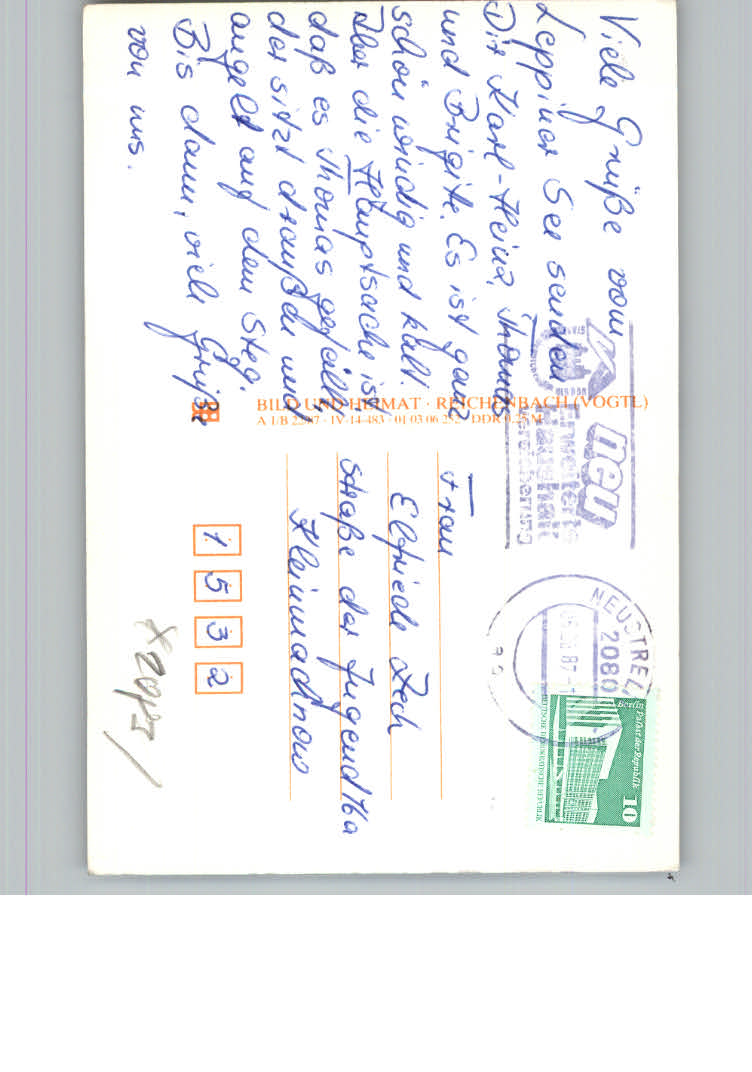 Viele Grüße vom
Leppiner See senden
Dir Karl-Heinz, Thomas
und Brigitte. Es ist ganz
schön windig und kalt.
Aber die Hauptsache ist,
daß es Thomas gefällt,
der sitzt draußen und
angelt auf dem Steg.
Bis dann, viele Grüße
von uns.
BILD UND HEIMAT · REICHENBACH (VOGTL)
A 1/B · IV-14-483 · 01 03 06 252 · DDR
neu
Erweiterte
Haushalt
versicherung
NEUSTREL
2080
Berlin, Palast der Republik
10
DEUTSCHE DEMOKRATISCHE REPUBLIK
Frau
Elfriede Zech
Straße der Jugend 16a
Kleinmachnow
1532